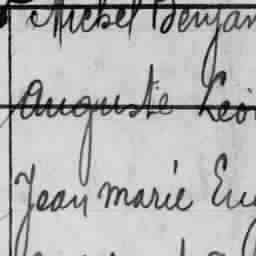 Michel Benjam
Auguste Léo
Jean marie Eu